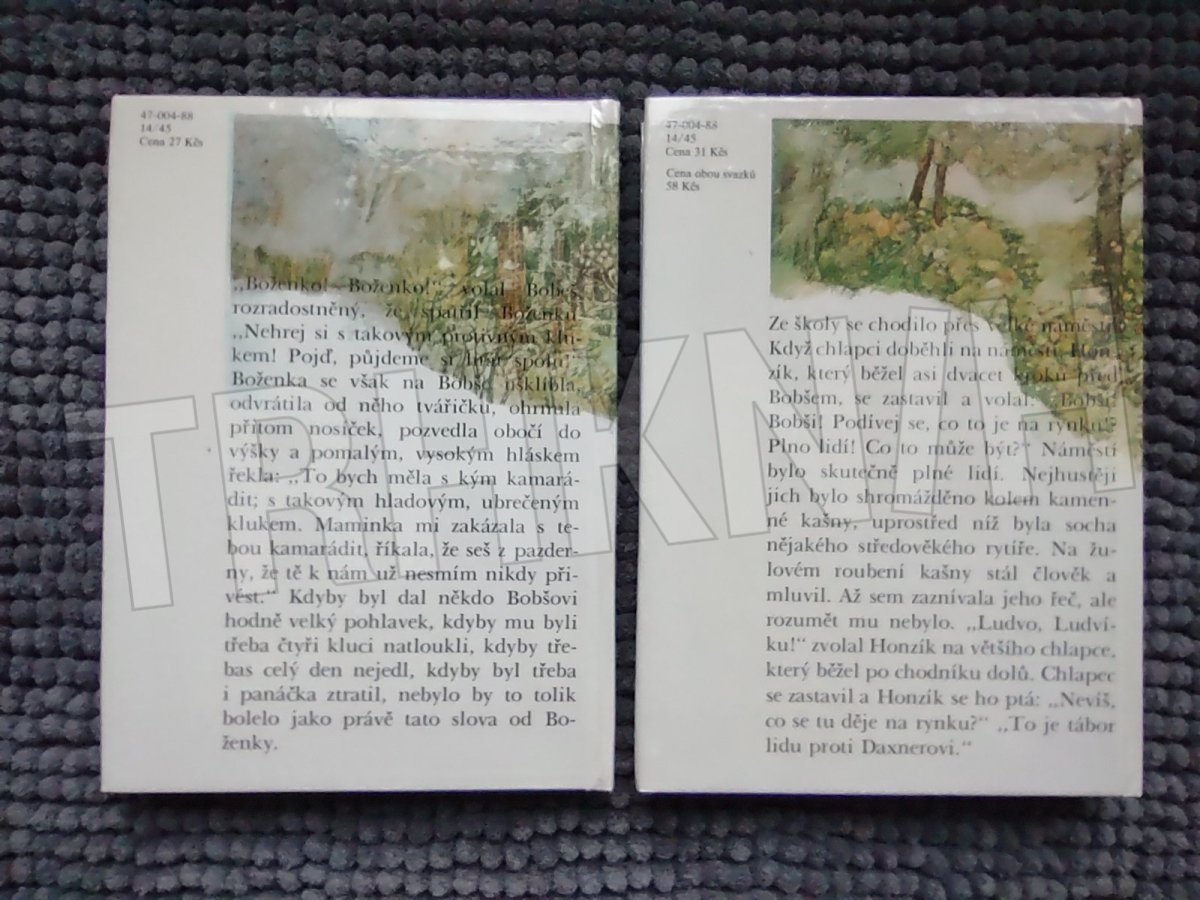 47-004-88
14/45
Cena 27 Kčs
„Boženko! Boženko!“ volal Bobeš
rozradostněný, že spatřil Boženku.
„Nehrej si s takovým protivným klu-
kem! Pojď, půjdeme si hrát spolu.“
Boženka se však na Bobše ušklíbla,
odvrátila od něho tvářičku, ohrnula
přitom nosíček, pozvedla obočí do
výšky a pomalým, vysokým hláskem
řekla: „To bych měla s kým kamará-
dit; s takovým hladovým, ubrečeným
klukem. Maminka mi zakázala s te-
bou kamarádit, říkala, že seš z pazder-
ny, že tě k nám už nesmím nikdy při-
vést.“ Kdyby byl dal někdo Bobšovi
hodně velký pohlavek, kdyby mu byli
třeba čtyři kluci natloukli, kdyby tře-
bas celý den nejedl, kdyby byl třeba
i panáčka ztratil, nebylo by to tolik
bolelo jako právě tato slova od Bo-
ženky.
47-004-88
14/45
Cena 31 Kčs
Cena obou svazků
58 Kčs
Ze školy se chodilo přes velké náměstí.
Když chlapci doběhli na náměstí, Hon-
zík, který běžel asi dvacet kroků před
Bobšem, se zastavil a volal: „Bobši!
Bobši! Podívej se, co to je na rynku!?
Plno lidí! Co to může být?“ Náměstí
bylo skutečně plné lidí. Nejhustěji
jich bylo shromážděno kolem kamen-
né kašny, uprostřed níž byla socha
nějakého středověkého rytíře. Na žu-
lovém roubení kašny stál člověk a
mluvil. Až sem zaznívala jeho řeč, ale
rozumět mu nebylo. „Ludvo, Ludví-
ku!“ zvolal Honzík na většího chlapce,
který běžel po chodníku dolů. Chlapec
se zastavil a Honzík se ho ptá: „Nevíš,
co se tu děje na rynku?“ „To je tábor
lidu proti Daxnerovi.“